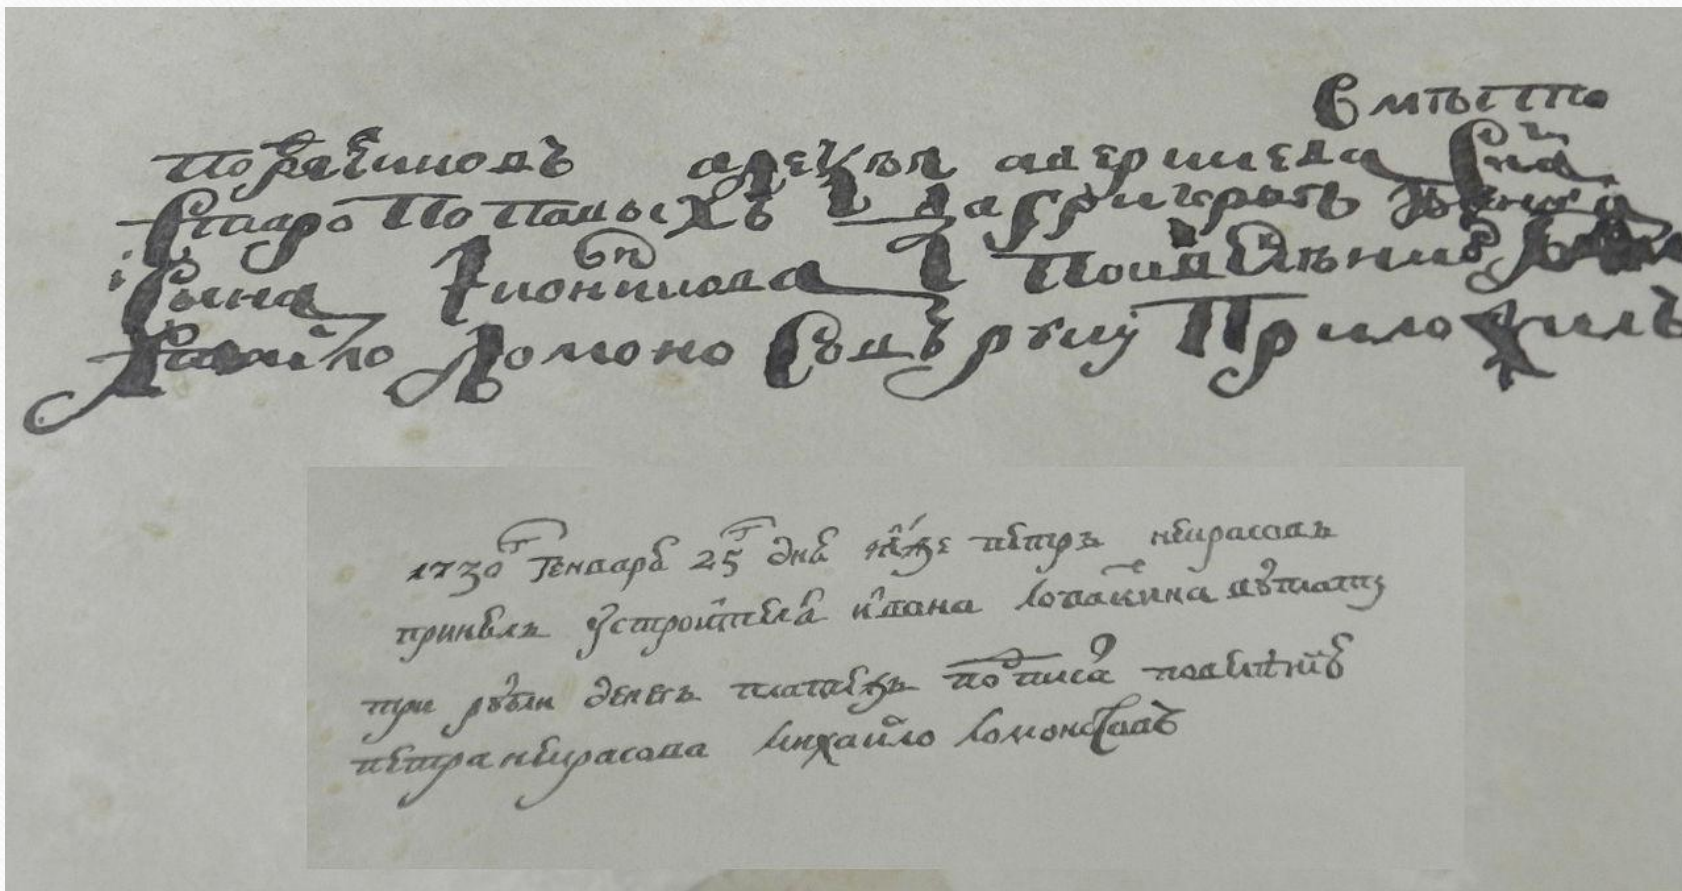 Вмѣсто
порячиковъ алеѯѣя аверкиева сна
Старопоповыхъ да григорья
сына иконникова по ихъ велѣнию
Михайло Ломоносовъ руку Приложилъ
1730 г Генваря 25 г дня петръ некрасовъ
принялъ ꙋстроителя ивана вꙋплату
три рꙋбли денегъ платежъ пописа повелѣнию
петра некрасова михайло ломоносовъ